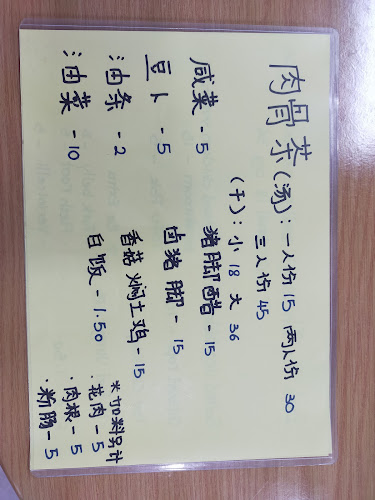 肉骨茶(汤): 一人份 15 两人份 30
三人份 45
(干): 小 18 大 36
咸菜 - 5 猪脚醋 - 15
豆卜 - 5 卤猪脚 - 15
油条 - 2 香菇焖土鸡 - 15
油菜 - 10 白饭 - 1.50
*加料另计
. 花肉 - 5
. 肉根 - 5
. 粉肠 - 5